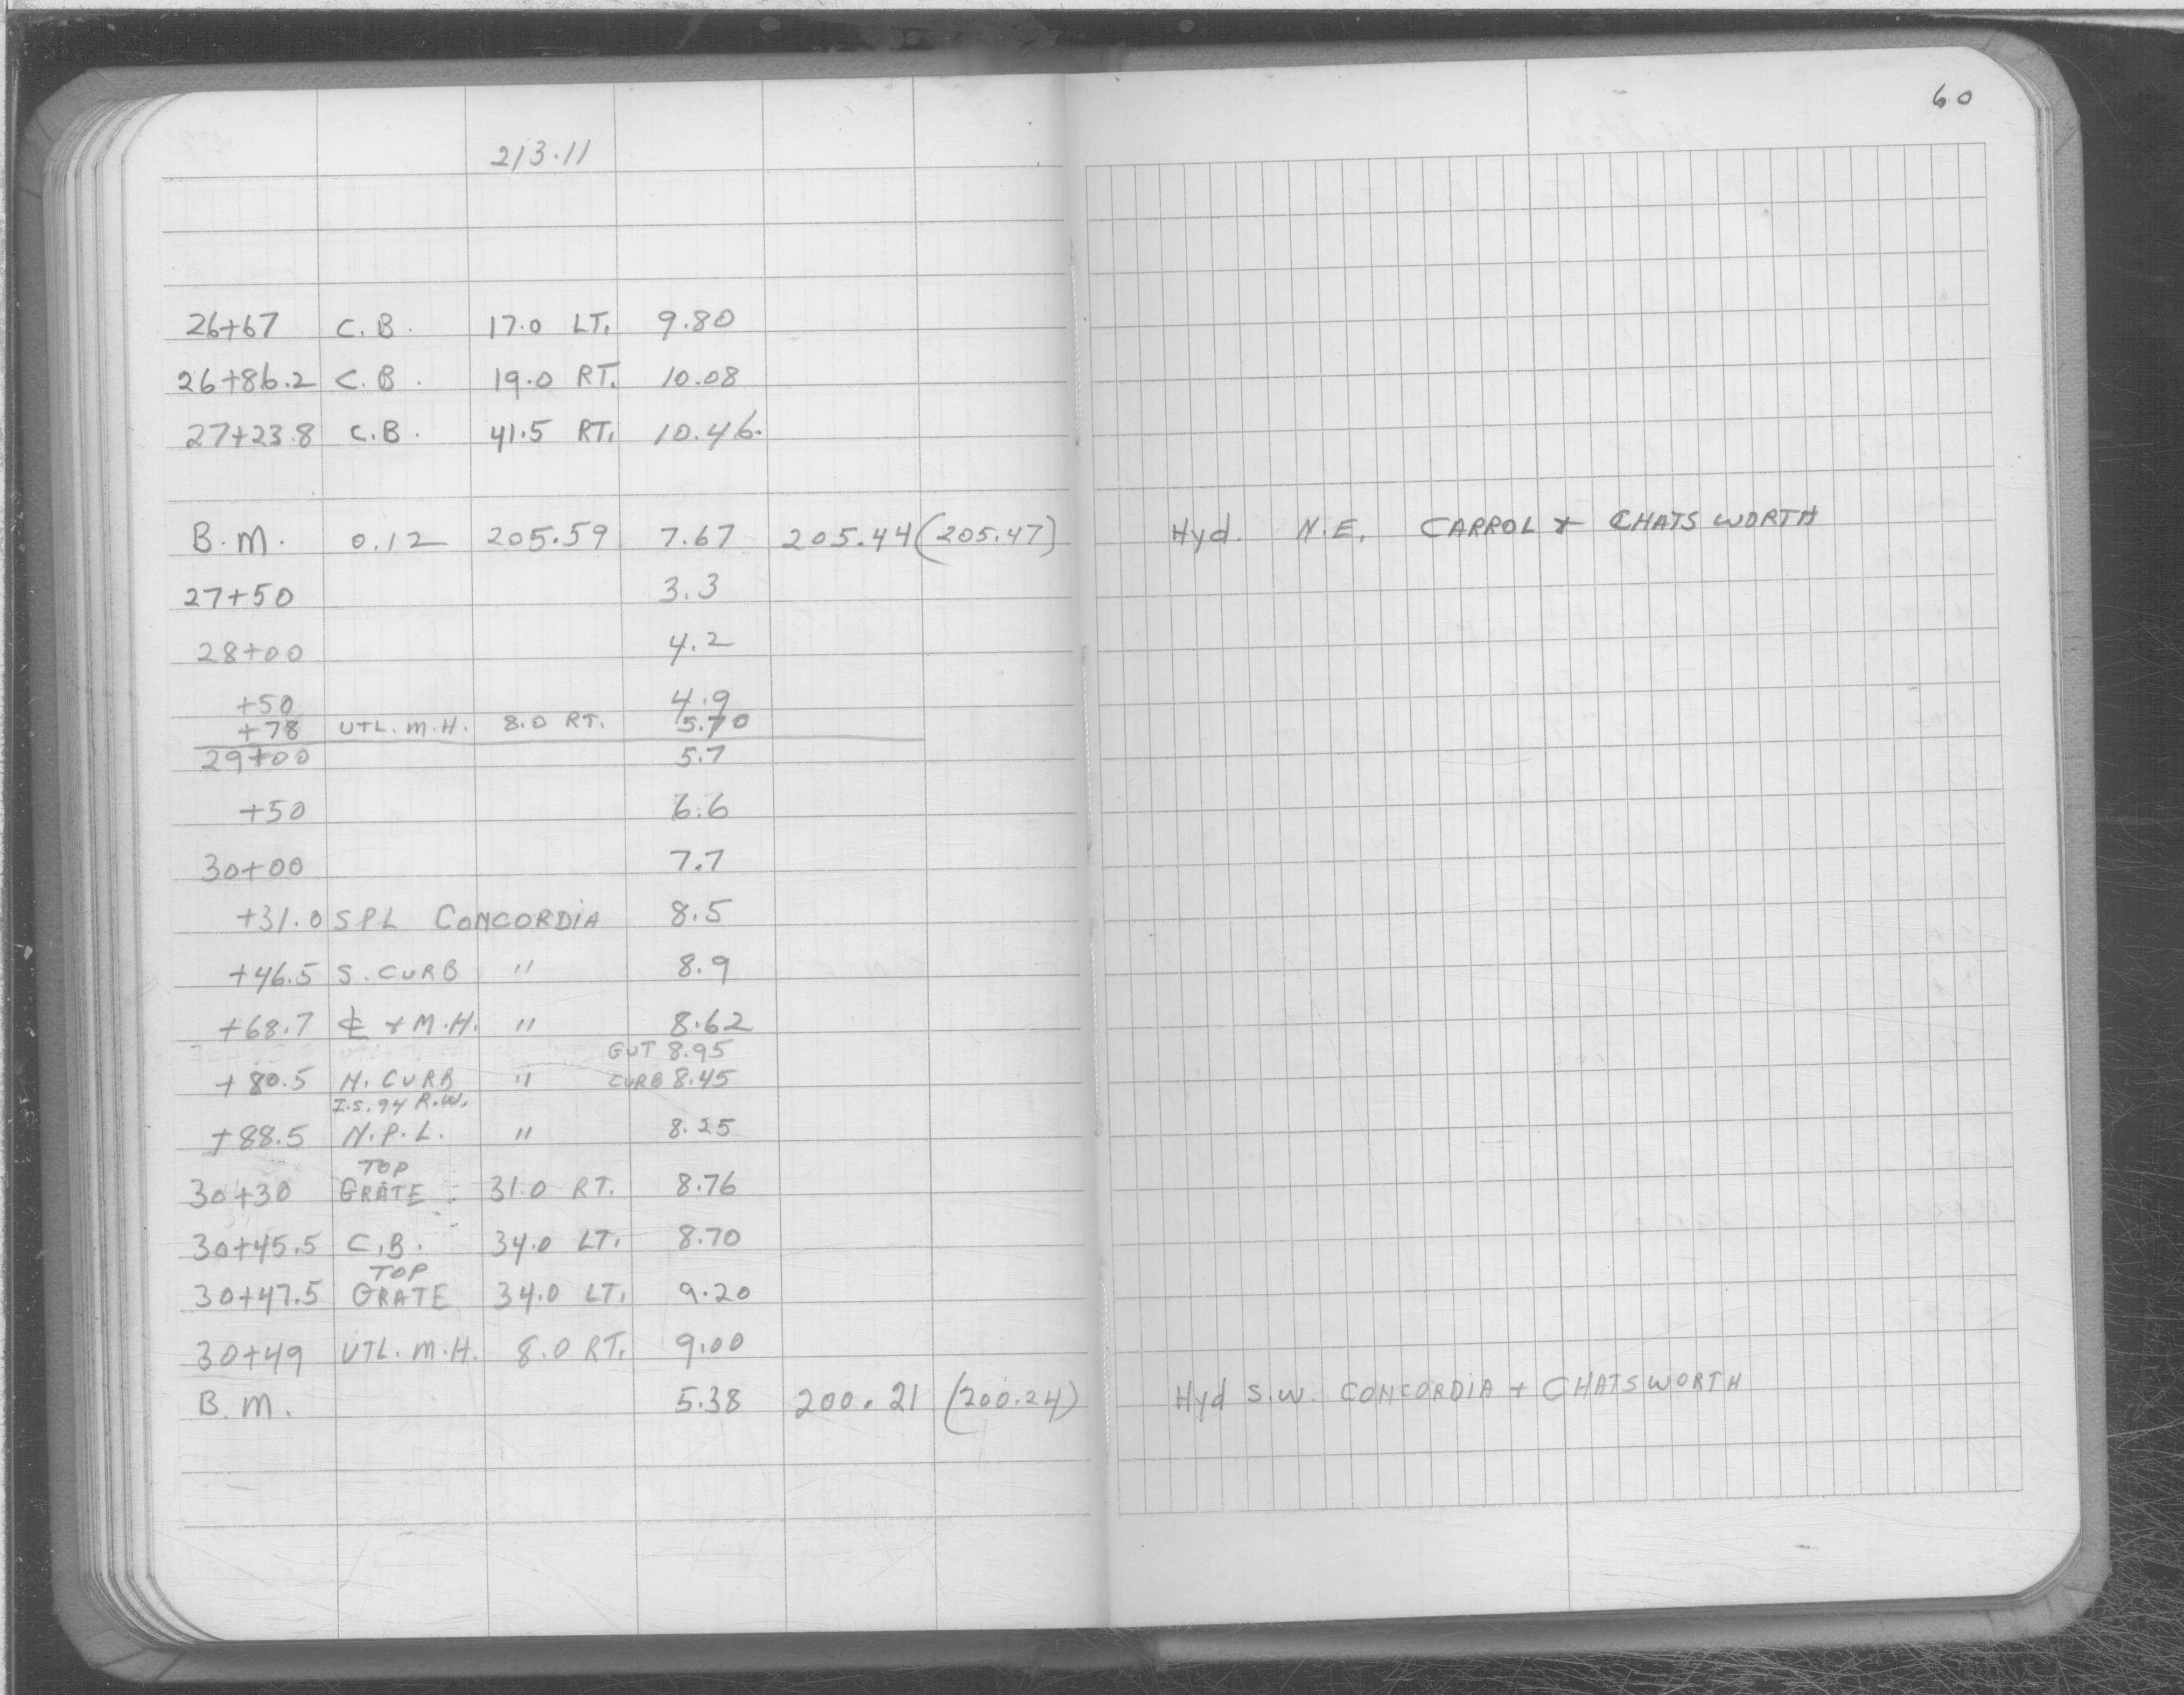 60
213.11
26+67 C.B. 17.0 LT. 9.80
26+86.2 C.B. 19.0 RT. 10.08
27+23.8 C.B. 41.5 RT. 10.46
B.M. 0.12 205.59 7.67 205.44 (205.47) Hyd. N.E. CARROL + CHATSWORTH
27+50 3.3
28+00 4.2
+50 4.9
+78 UTL. M.H. 8.0 RT. 5.70
29+00 5.7
+50 6.6
30+00 7.7
+31.0 S P L CONCORDIA 8.5
+46.5 S. CURB " 8.9
+68.7 ℄ + M.H. " 8.62
GUT 8.95
+80.5 N. CURB " CURB 8.45
I.S. 94 R.W.
+88.5 N.P.L. " 8.25
TOP
30+30 GRATE 31.0 RT. 8.76
30+45.5 C.B. 34.0 LT. 8.70
TOP
30+47.5 GRATE 34.0 LT. 9.20
30+49 UTL. M.H. 8.0 RT. 9.00
B.M. 5.38 200.21 (200.24) Hyd S.W. CONCORDIA + CHATSWORTH